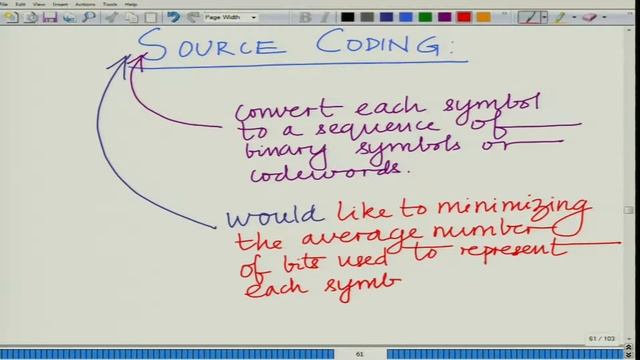 File Edit View Insert Actions Tools Help
Page Width
SOURCE CODING:
convert each symbol
to a sequence of
binary symbols or
codewords.
would like to minimizing
the average number
of bits used to represent
each symb
61 / 103
61